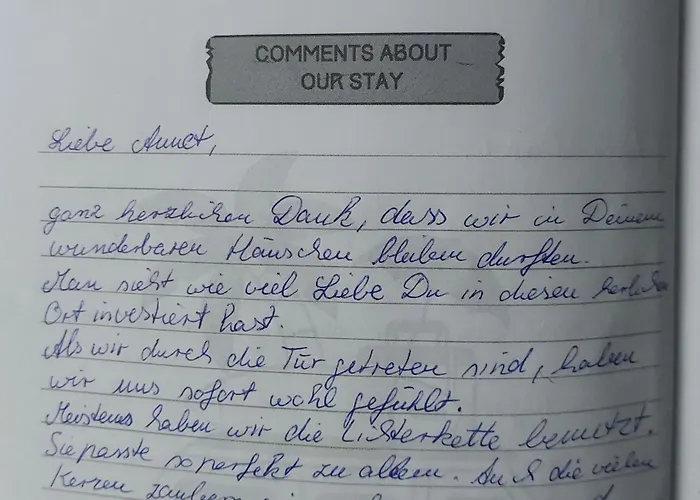 COMMENTS ABOUT
OUR STAY
Liebe Annet,
ganz herzlichen Dank, dass wir in Deinem
wunderbaren Häuschen bleiben durften.
Man sieht wie viel Liebe Du in diesen
Ort investiert hast.
Als wir durch die Tür getreten sind, haben
wir uns sofort wohl gefühlt.
Meistens haben wir die Lichterkette benutzt.
Sie passte so perfekt zu allem. Auch die vielen
Kerzen